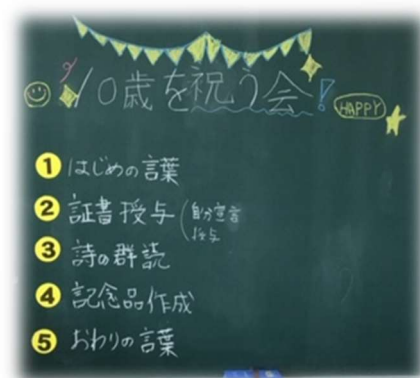 10歳を祝う会!
HAPPY
1 はじめの言葉
2 証書授与(自分宣言
授与
3 詩の群読
4 記念品作成
5 おわりの言葉